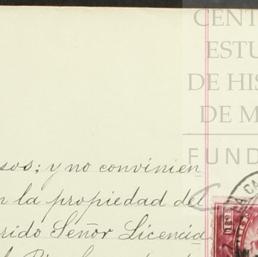 CENT
ESTU
DE HIS
DE M
FUND
sos; y no convinien
n la propiedad del
rido Señor Licencia